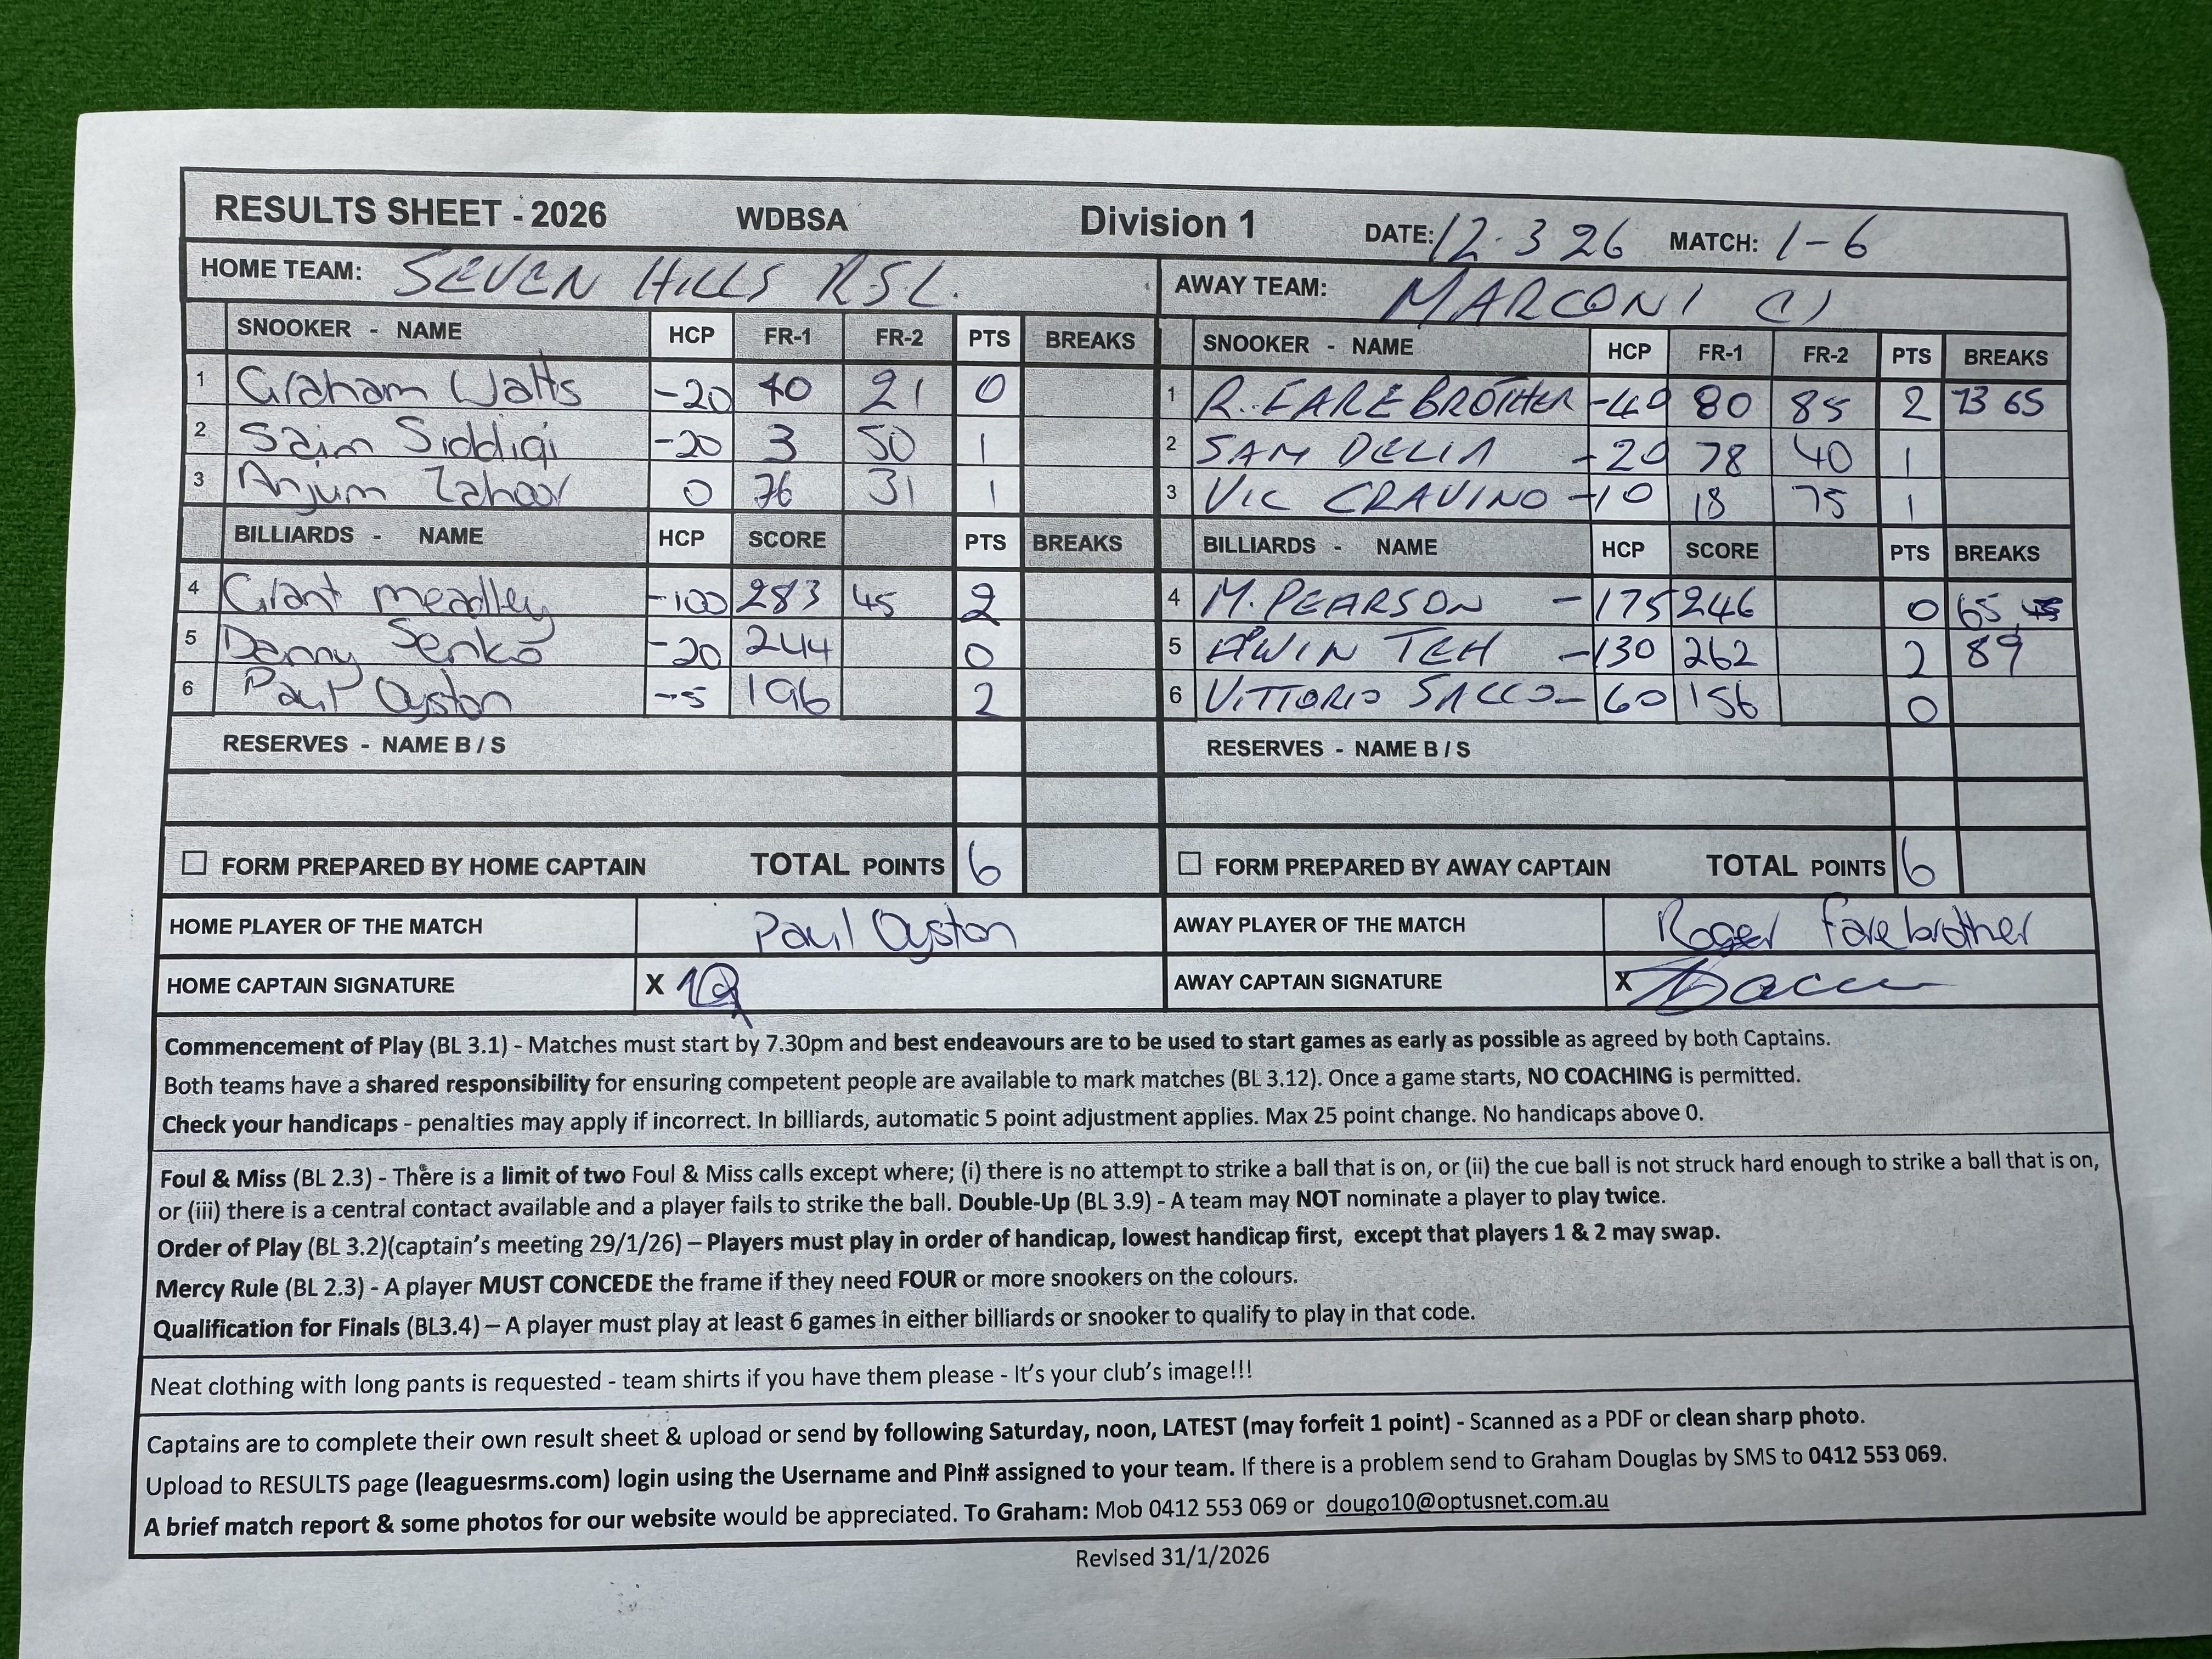 RESULTS SHEET - 2026 WDBSA Division 1 DATE: 12.3 26 MATCH: 1-6
HOME TEAM: SEVEN HILLS R.S.L. AWAY TEAM: MARCONI (1)
SNOOKER - NAME HCP FR-1 FR-2 PTS BREAKS SNOOKER - NAME HCP FR-1 FR-2 PTS BREAKS
1 Graham Watts -20 40 21 0 1 R. FAREBROTHER -40 80 85 2 73 65
2 Saim Siddiqi -20 3 50 1 2 SAM DELIA -20 78 40 1
3 Anjum Zahoor 0 76 31 1 3 VIC CRAVINO -10 18 75 1
BILLIARDS - NAME HCP SCORE PTS BREAKS BILLIARDS - NAME HCP SCORE PTS BREAKS
4 Grant meadley -100 283 45 2 4 M. PEARSON -175 246 0 65
5 Denny Senko -20 244 0 5 AWIN TEH -130 262 2 89
6 Paul Oyston -5 196 2 6 VITTORIO SACCO -60 156 0
RESERVES - NAME B / S RESERVES - NAME B / S
FORM PREPARED BY HOME CAPTAIN TOTAL POINTS 6 FORM PREPARED BY AWAY CAPTAIN TOTAL POINTS 6
HOME PLAYER OF THE MATCH Paul Oyston AWAY PLAYER OF THE MATCH Roger Farebrother
HOME CAPTAIN SIGNATURE X AWAY CAPTAIN SIGNATURE X
Commencement of Play (BL 3.1) - Matches must start by 7.30pm and best endeavours are to be used to start games as early as possible as agreed by both Captains.
Both teams have a shared responsibility for ensuring competent people are available to mark matches (BL 3.12). Once a game starts, NO COACHING is permitted.
Check your handicaps - penalties may apply if incorrect. In billiards, automatic 5 point adjustment applies. Max 25 point change. No handicaps above 0.
Foul & Miss (BL 2.3) - There is a limit of two Foul & Miss calls except where; (i) there is no attempt to strike a ball that is on, or (ii) the cue ball is not struck hard enough to strike a ball that is on,
or (iii) there is a central contact available and a player fails to strike the ball. Double-Up (BL 3.9) - A team may NOT nominate a player to play twice.
Order of Play (BL 3.2)(captain's meeting 29/1/26) – Players must play in order of handicap, lowest handicap first, except that players 1 & 2 may swap.
Mercy Rule (BL 2.3) - A player MUST CONCEDE the frame if they need FOUR or more snookers on the colours.
Qualification for Finals (BL3.4) – A player must play at least 6 games in either billiards or snooker to qualify to play in that code.
Neat clothing with long pants is requested - team shirts if you have them please - It's your club's image!!!
Captains are to complete their own result sheet & upload or send by following Saturday, noon, LATEST (may forfeit 1 point) - Scanned as a PDF or clean sharp photo.
Upload to RESULTS page (leaguesrms.com) login using the Username and Pin# assigned to your team. If there is a problem send to Graham Douglas by SMS to 0412 553 069.
A brief match report & some photos for our website would be appreciated. To Graham: Mob 0412 553 069 or dougo10@optusnet.com.au
Revised 31/1/2026